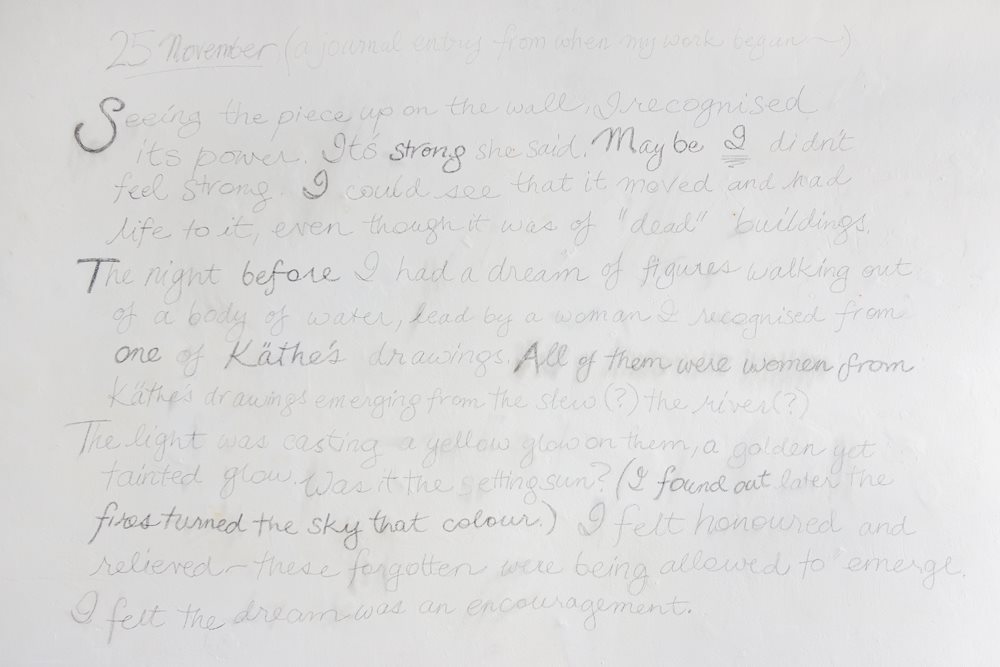 25 November (a journal entry from when my work began~)
Seeing the piece up on the wall, I recognised
its power. It's strong she said. Maybe I didn't
feel strong. I could see that it moved and had
life to it, even though it was of "dead" buildings.
The night before I had a dream of figures walking out
of a body of water, lead by a woman I recognised from
one of Käthe's drawings. All of them were women from
Käthe's drawings emerging from the slew (?) the river (?)
The light was casting a yellow glow on them, a golden yet
tainted glow. Was it the setting sun? (I found out later the
fires turned the sky that colour.) I felt honoured and
relieved ~ these forgotten were being allowed to emerge.
I felt the dream was an encouragement.